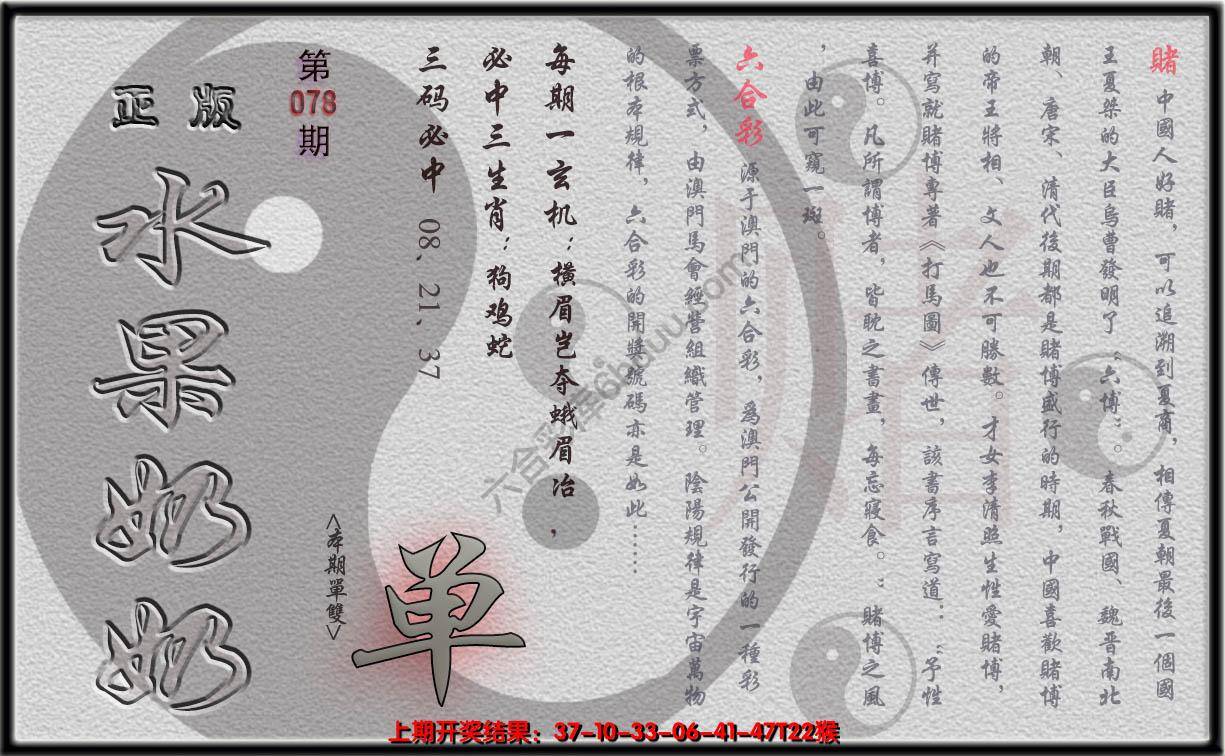 賭 中國人好賭，可以追溯到夏商，相傳夏朝最後一個國
王夏桀的大臣烏曹發明了“六博”。春秋戰國、魏晉南北
朝、唐宋、清代後期都是賭博盛行的時期，中國喜歡賭博
的帝王將相、文人也不可勝數。才女李清照生性愛賭博，
并寫就賭博專著《打馬圖》傳世，該書序言寫道：“予性
喜博。凡所謂博者，皆耽之書畫，每忘寢食。”賭博之風
，由此可窺一斑。
六合彩 源于澳門的六合彩，爲澳門公開發行的一種彩
票方式，由澳門馬會經營組織管理。陰陽規律是宇宙萬物
的根本規律，六合彩的開獎號碼亦是如此……
每期一玄机：橫眉岂夺蛾眉冶，
必中三生肖：狗鸡蛇
三码必中 08、21、37
第
078
期
正版
水果奶奶
<本期單雙>
单
賭
上期开奖结果：37-10-33-06-41-47T22猴